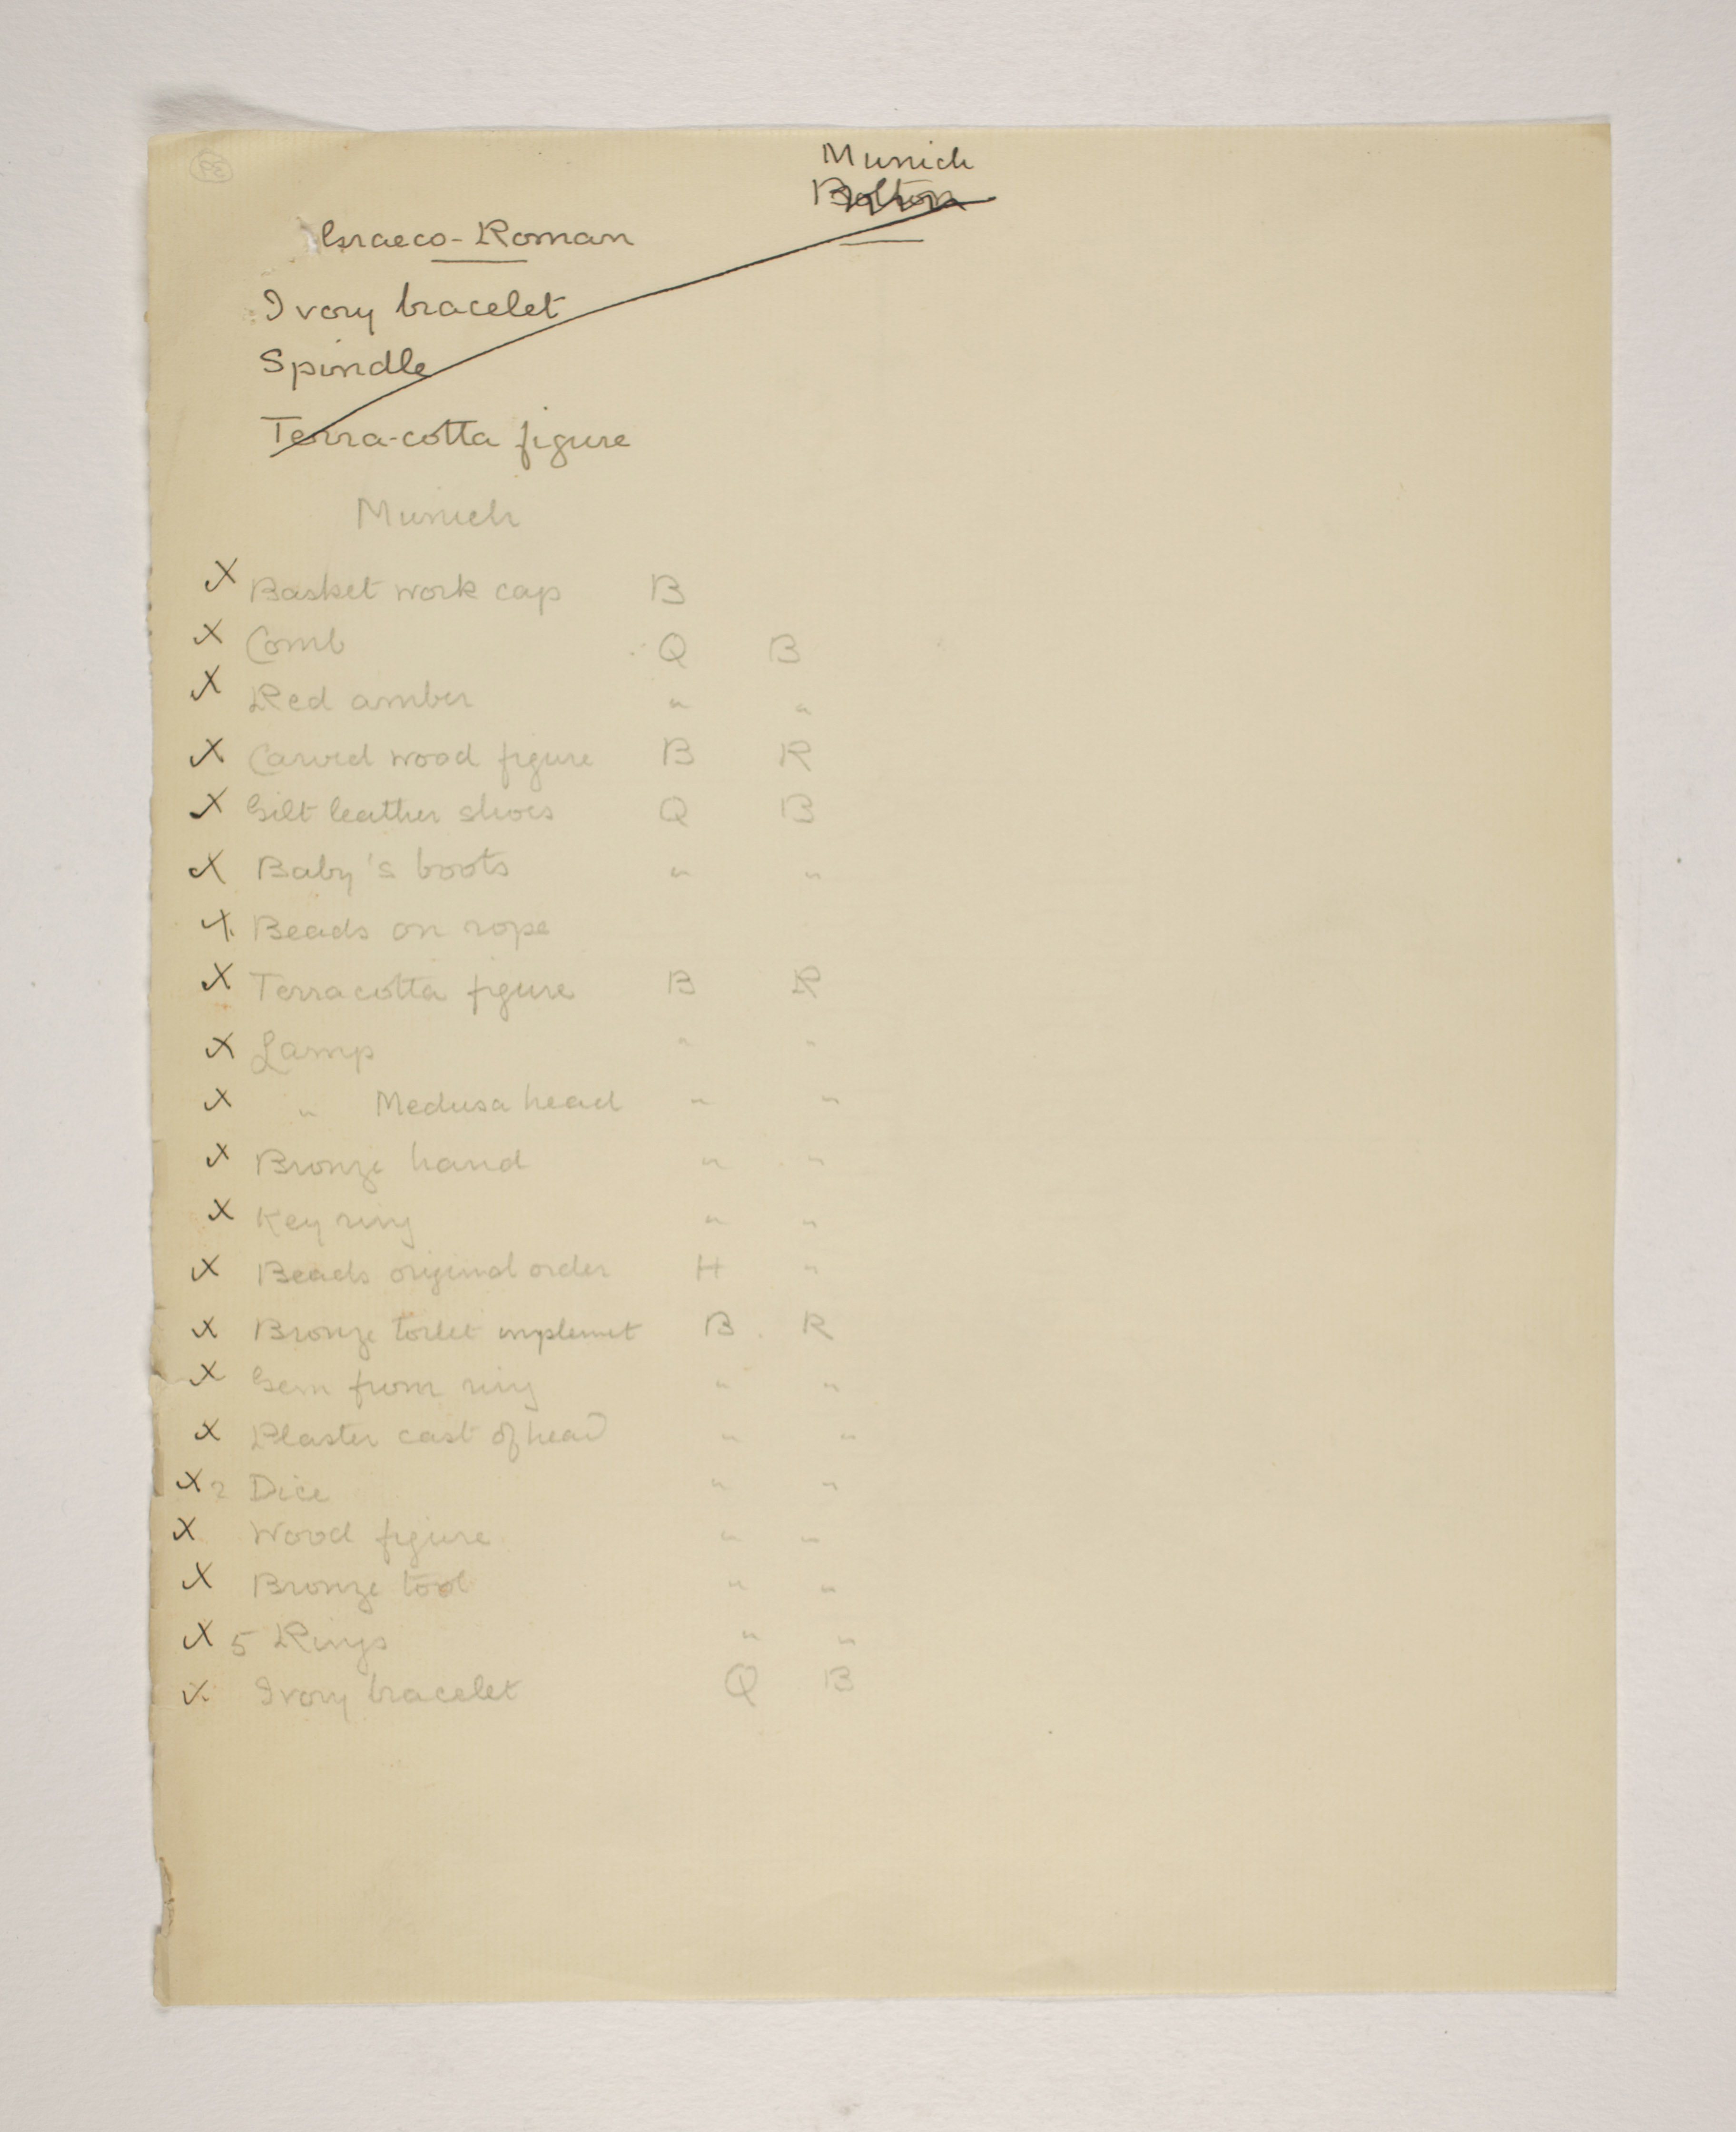 Munich
Bolton
Graeco-Roman
Ivory bracelet
Spindle
Terra-cotta figure
Munich
X Basket work cap B
X Comb Q B
X Red amber " "
X Carved wood figure B R
X Gilt leather shoes Q B
X Baby's boots " "
X Beads on rope
X Terracotta figure B R
X Lamp " "
X " Medusa head " "
X Bronze hand " "
X Key ring " "
X Beads original order H "
X Bronze toilet implemet B R
X Gem from ring " "
X Plaster cast of head " "
X 2 Dice " "
X Wood figure " "
X Bronze tool " "
X 5 Rings " "
X Ivory bracelet Q B